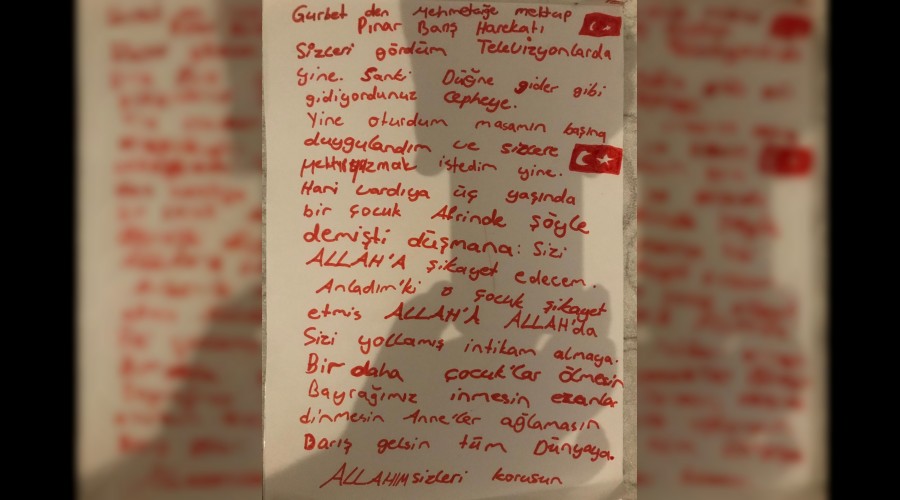 Gurbet den Mehmetağe mektup
Pınar Barış Harekatı
Sizleri gördüm Televizyonlarda
yine. Sanki Düğne gider gibi
gidiyordunuz Cepheye.
Yine oturdum masamın başına
duygulandım ve sizlere
yazmak istedim yine.
Hani vardıya üç yaşında
bir çocuk Afrinde şöyle
demişti düşmana: Sizi
ALLAH'A şikayet edecem.
Anladım'ki o çocuk şikayet
etmiş ALLAH'A ALLAH'da
Sizi yollamış intikam almaya.
Bir daha çocuk'lar ölmesin
Bayrağımız inmesin ezanlar
dinmesin Anne'ler ağlamasın
Barış gelsin tüm Dünyaya.
ALLAHIM sizleri korusun